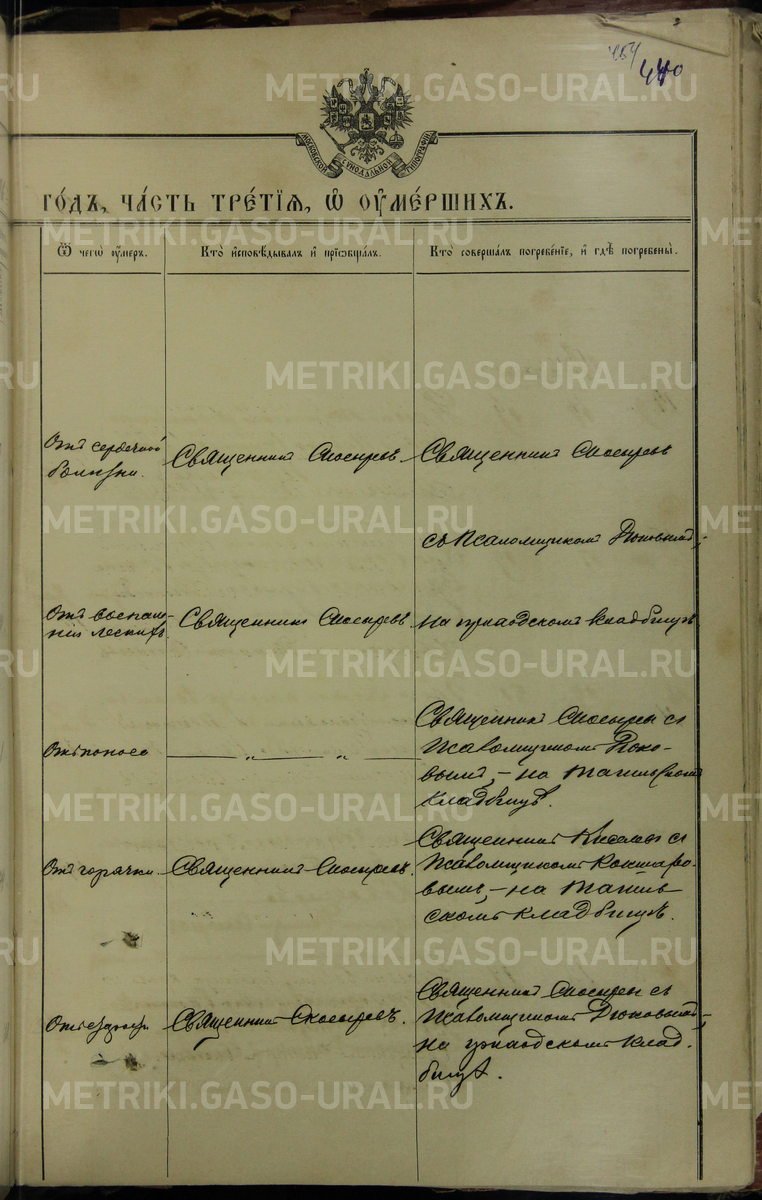 454
440
МОСКОВСКОЙ СѴНОДАЛЬНОЙ ТИПОГРАФІИ
ГО́ДЪ, ЧА́СТЬ ТРЕ́ТІѦ, Ѡ҆ ОУ҆МЕ́РШИХЪ.
Ѿ чегѡ̀ оу҆́меръ.
Кто̀ и҆сповѣ́дывалъ и҆ прїѡбща́лъ.
Кто̀ соверша́лъ погребе́нїе, и҆ гдѣ̀ погребены̀.
Отъ сердечной
болѣзни.
Священникъ Скосыревъ.
Священникъ Скосыревъ
съ Псаломщикомъ Дюковымъ,
Отъ воспале-
нія легкихъ
Священникъ Скосыревъ.
на градскомъ кладбищѣ
Отъ поноса
— „ — „ —
Священникъ Скосыревъ съ
Псаломщикомъ Дюко-
вымъ, – на Тагильскомъ
кладбищѣ.
Отъ горячки.
Священникъ Скосыревъ.
Священникъ съ
Псаломщикомъ
вымъ, – на Тагиль-
скомъ кладбищѣ.
Священникъ Скосыревъ.
Священникъ Скосыревъ съ
Псаломщикомъ Дюковымъ,
на градскомъ клад-
бищѣ.
METRIKI.GASO-URAL.RU